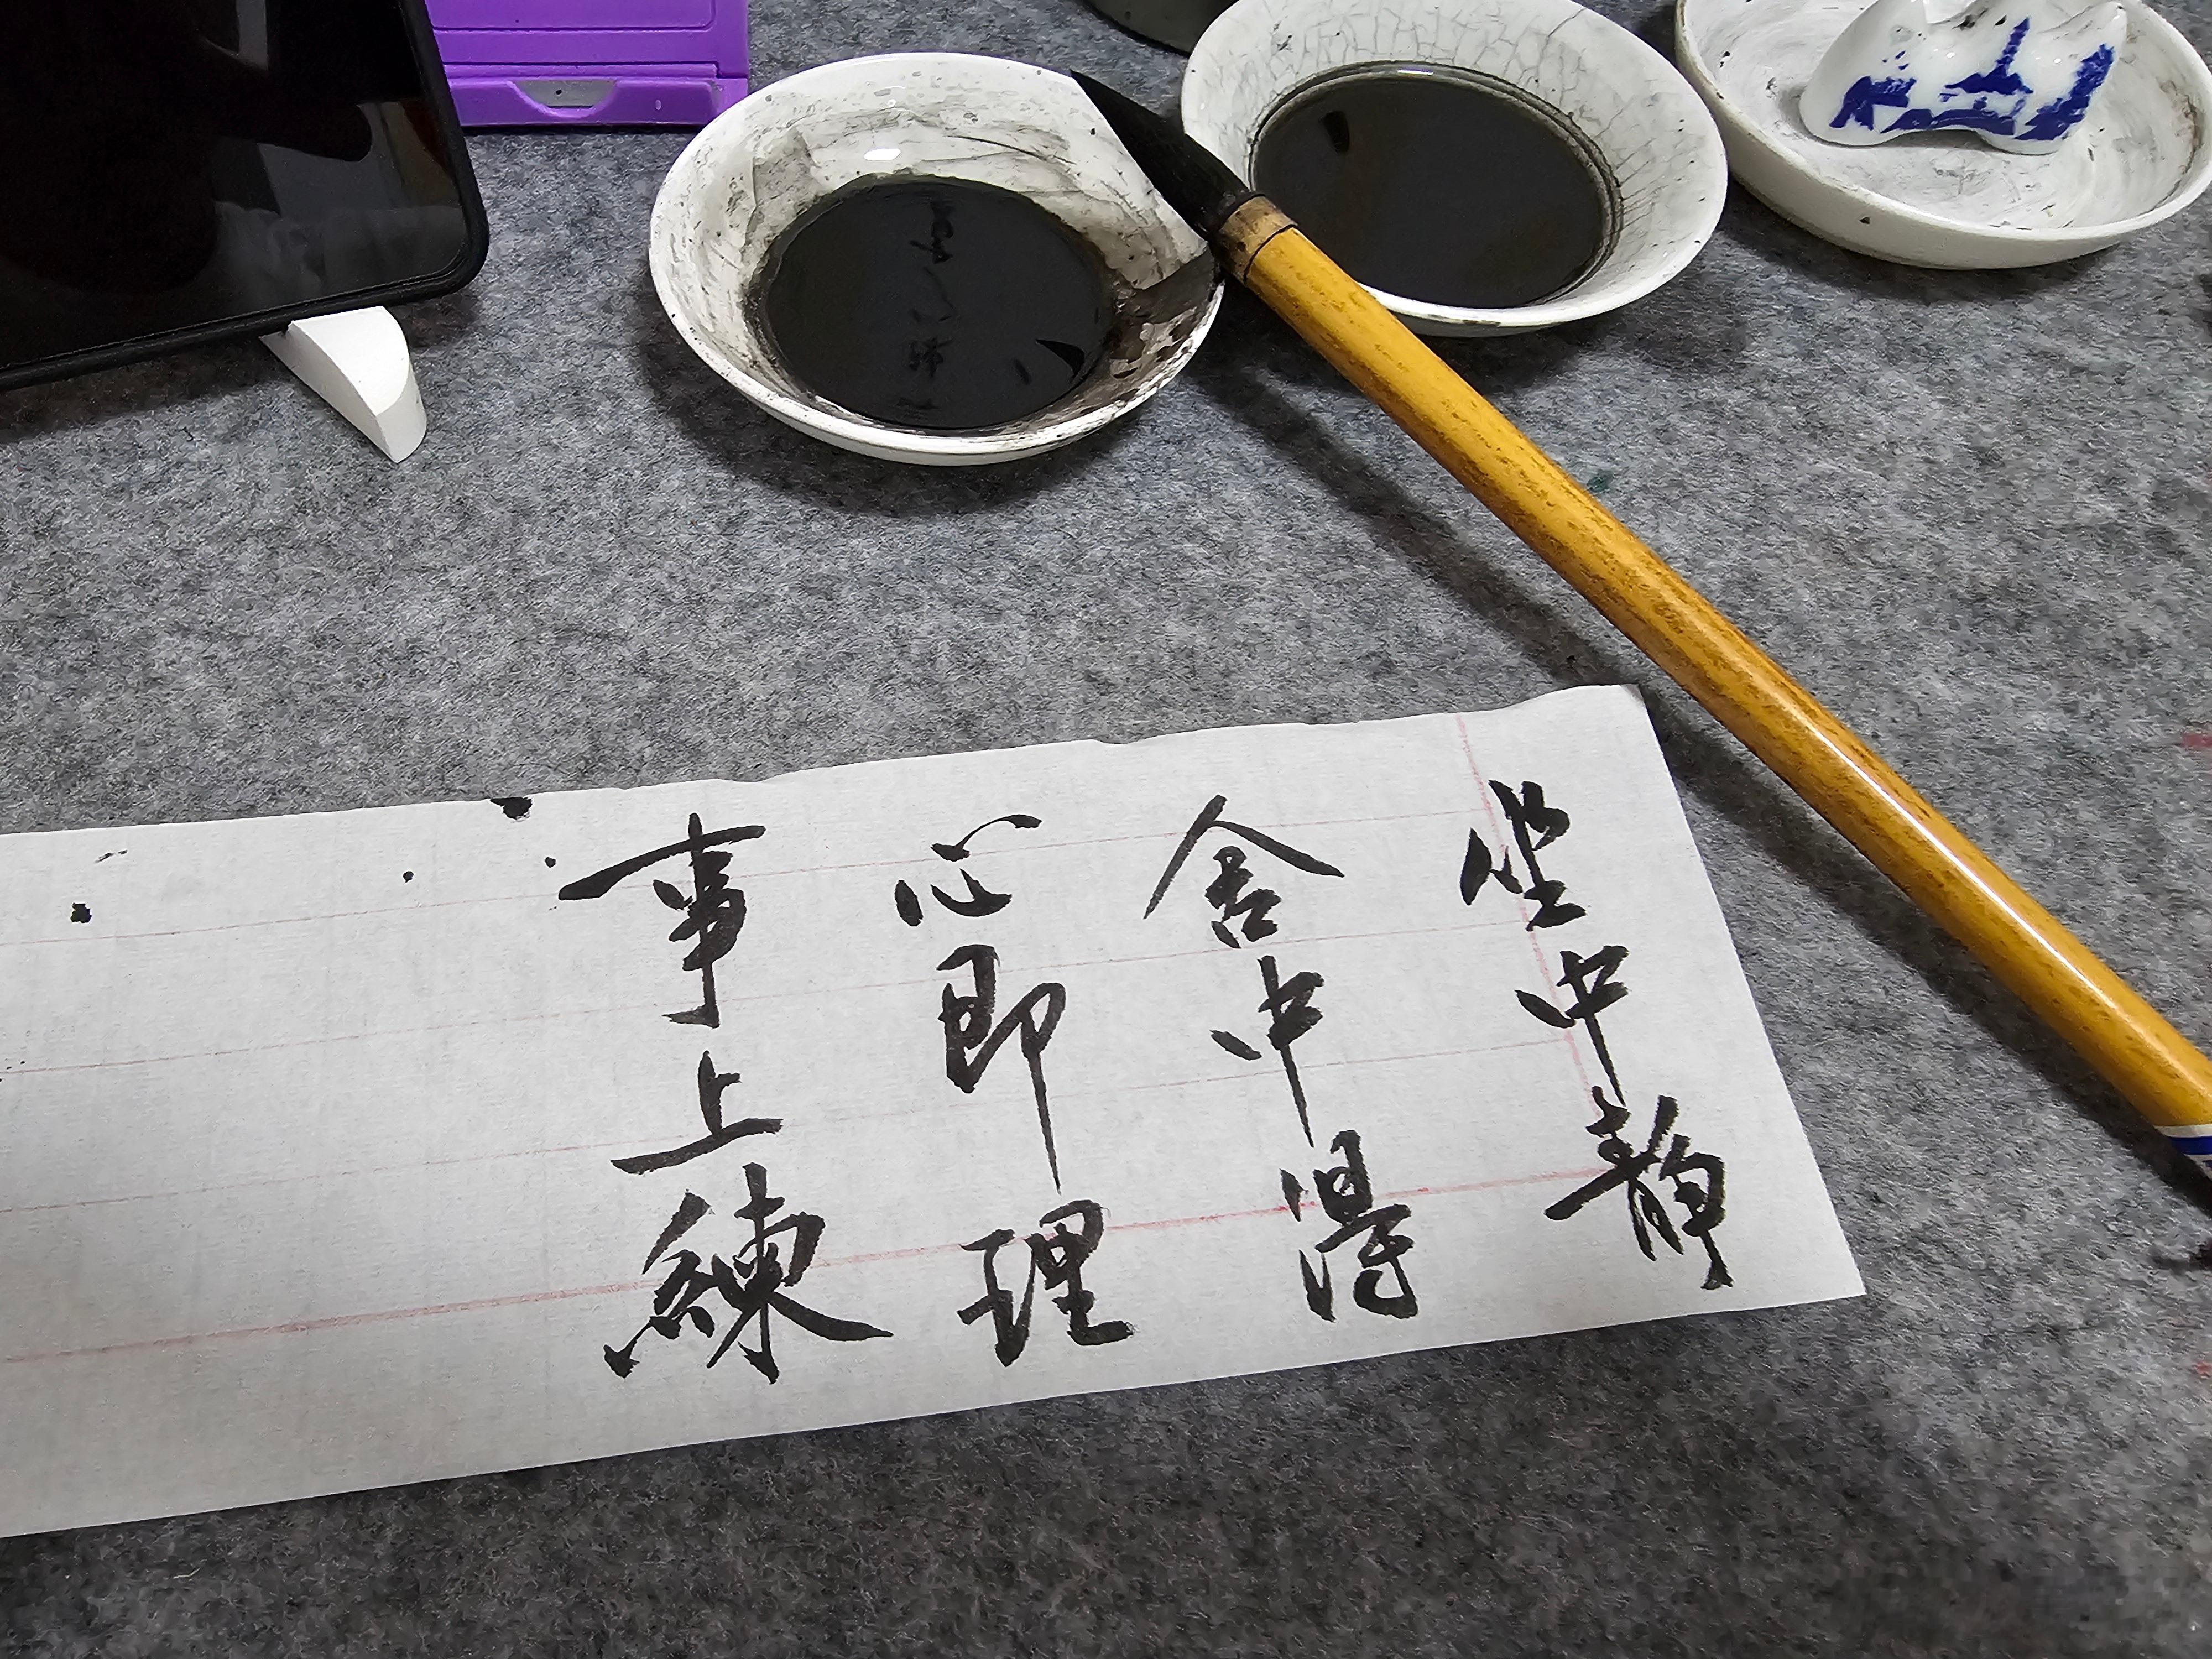 坐中静
舍中得
心即理
事上練